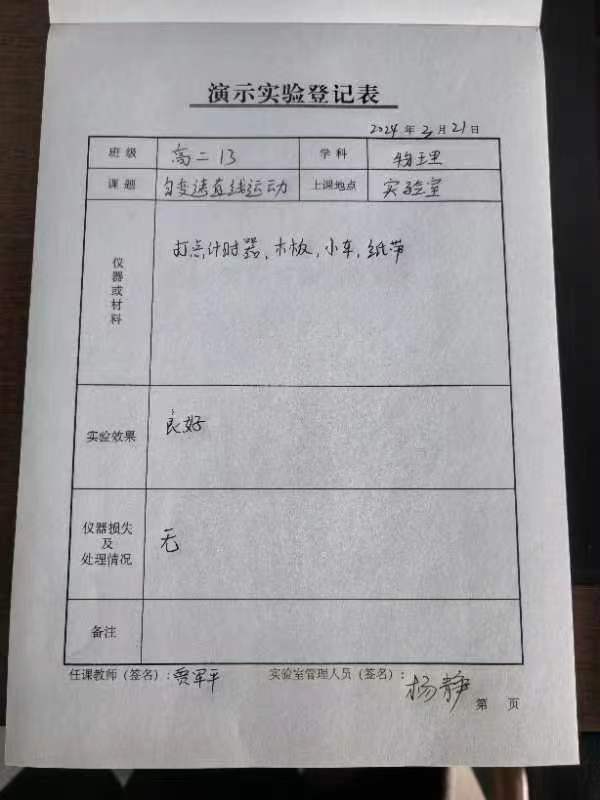 演示实验登记表
2024年3月21日
班级 高二13 学科 物理
课题 匀变速直线运动 上课地点 实验室
仪器或材料 打点计时器,木板,小车,纸带
实验效果 良好
仪器损失
及 无
处理情况
备注
任课教师(签名):贾军平 实验室管理人员(签名):杨静
第 页